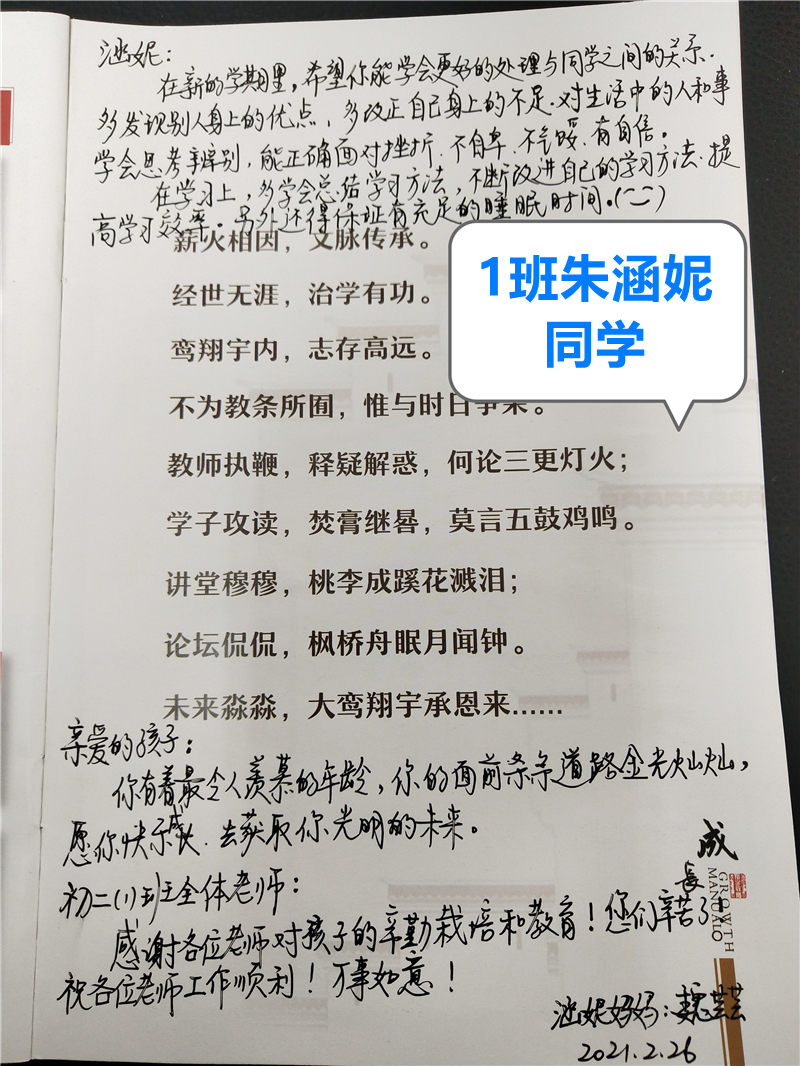 涵妮：
在新的学期里，希望你能学会更好的处理与同学之间的关系.
多发现别人身上的优点，多改正自己身上的不足.对生活中的人和事
学会思考辨别，能正确面对挫折.不自卑.不气馁.有自信。
在学习上，多学会总结学习方法，不断改进自己的学习方法.提
高学习效率。另外还得保证有充足的睡眠时间。
薪火相因，文脉传承。
1班朱涵妮
同学
经世无涯，治学有功。
鸾翔宇内，志存高远。
不为教条所囿，惟与时日争来。
教师执鞭，释疑解惑，何论三更灯火；
学子攻读，焚膏继晷，莫言五鼓鸡鸣。
讲堂穆穆，桃李成蹊花溅泪；
论坛侃侃，枫桥舟眠月闻钟。
未来淼淼，大鸾翔宇承恩来……
亲爱的孩子：
你有着最令人羡慕的年龄，你的面前条条道路金光灿灿，
愿你快乐成长.去获取你光明的未来。
初二(1)班全体老师：
感谢各位老师对孩子的辛勤栽培和教育！您们辛苦了
祝各位老师工作顺利！万事如意！
涵妮妈妈：魏芸芸
2021.2.26
成
長
GROWTH
MANUAL